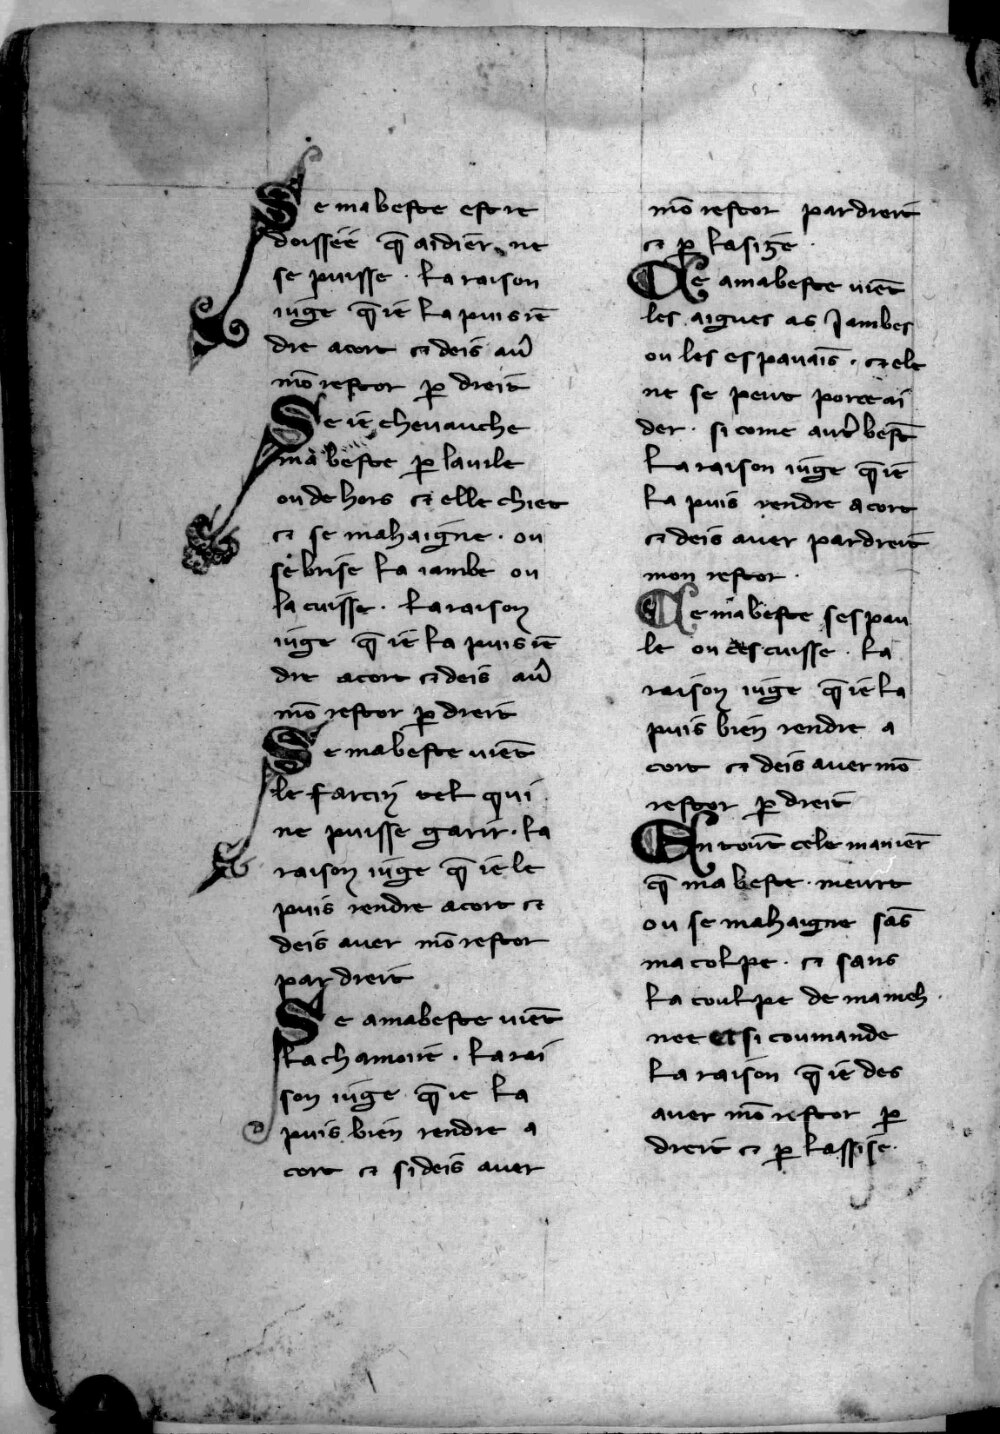 Se ma beste est re
doissēe q̄ aidier ne
se puisse . la raison
iuge q̄ ie la puis rē
dre acort ⁊ deis au̓
mō restor ꝑ dreit
Se ie cheuauche
ma beste ꝑ la uile
ou de hors ⁊ elle chiet
⁊ se mahaigne . ou
se brise la iambe ou
la cuisse . la raison
iuge q̄ ie la puis rē
dre acort ⁊ deis au̓
mō restor ꝑ dreit
Se ma beste uiēt
le farcin tel qui
ne puisse garir . la
raison iuge q̄ ie le
puis rendre acort ⁊
deis auer mō restor
par dreit
Se a ma beste uiēt
la chamoire . la rai
son iuge q̄ ie la
puis bien rendre a
cort ⁊ si deis auer
mō restor par dreit
⁊ ꝑ la size .
Se a ma beste uiēt
les aigues as Jambes
ou les espauais . ⁊ ele
ne se peut porte ai
der . si come aut̓ best̄
la raison iuge q̄ ie
la puis rendre acort
⁊ deis auer par dreit
mon restor .
Se ma beste sespau
le ou descuisse . la
raison iuge q̄ ie la
puis bien rendre a
cort ⁊ deis auer mō
restor ꝑ dreit
En tout cele manier̄
q̄ ma beste . meurt
ou se mahaigne sās
ma colpe . ⁊ sans
la coulpe de ma meh
nee et si coumande
la raison q̄ ie des
auer mō restor ꝑ
dreit ⁊ ꝑ lassise .